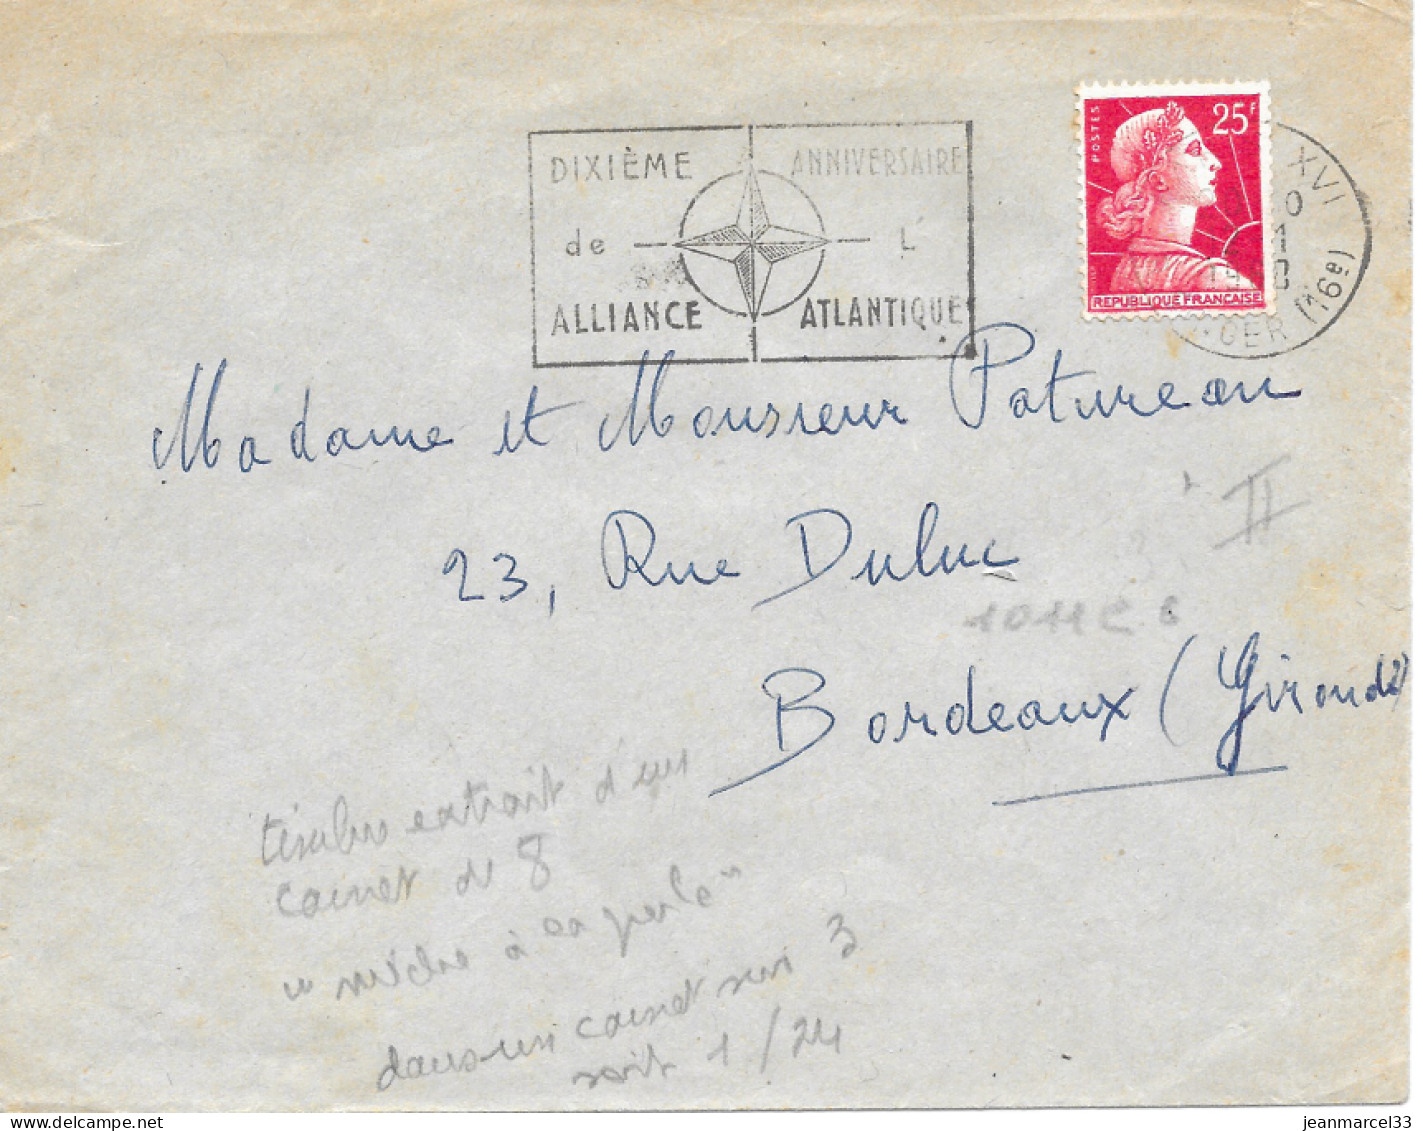 DIXIÈME ANNIVERSAIRE
de L
ALLIANCE ATLANTIQUE
POSTES
25F
REPUBLIQUE FRANCAISE
XVI
GER (16e)
Madame et Monsieur Patureau
23, Rue Duluc
Bordeaux (Gironde)
II
1011C
timbre extrait d'un
carnet de 8
"mèche à la perle"
dans un carnet sur 3
soit 1/24
jeanmarcel33